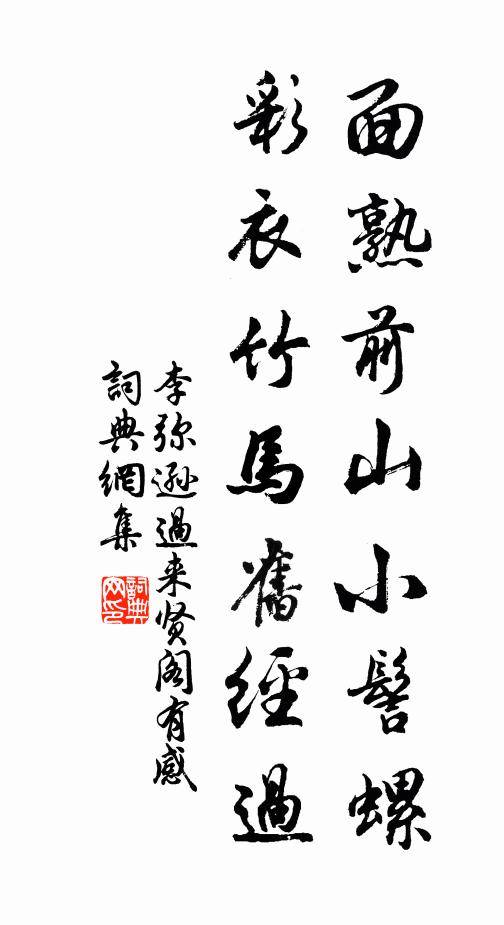 面熟前山小髻螺
彩衣竹馬舊經過
李弥遜過来贤阁有感
詞典網集
詞典網印